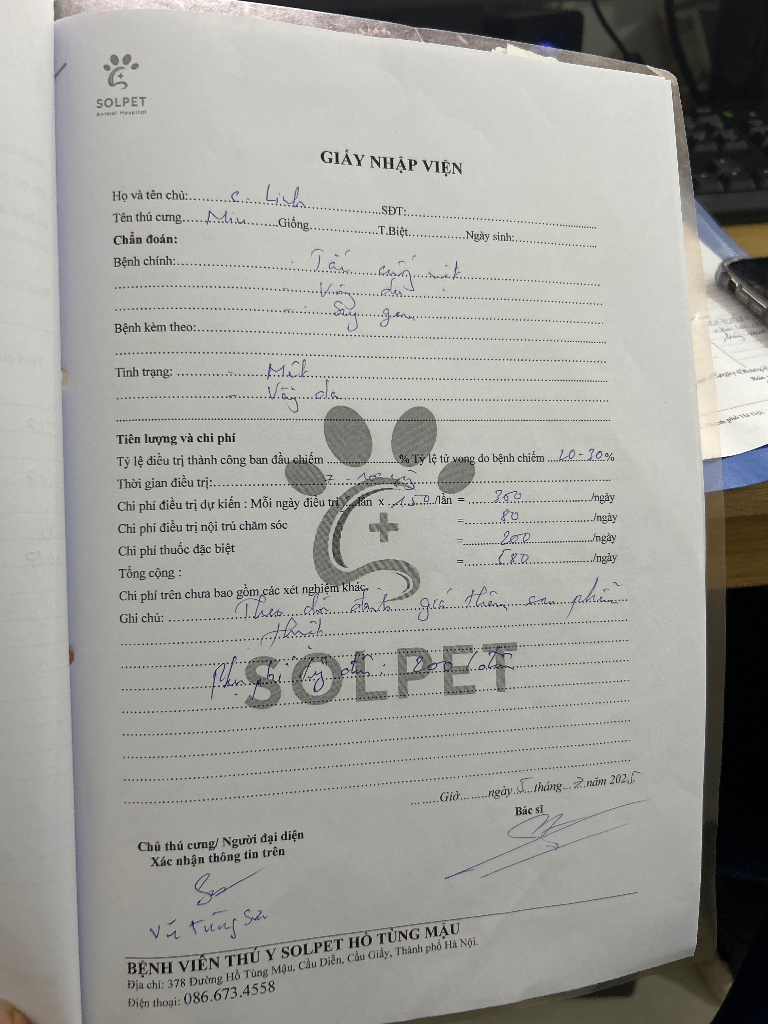 SOLPET
Animal Hospital
GIẤY NHẬP VIỆN
Họ và tên chủ: c. Linh SĐT:
Tên thú cưng Miu Giống T.Biệt Ngày sinh:
Chẩn đoán:
Bệnh chính: - Tắc ống mật
- Vàng da
- Suy gan
Bệnh kèm theo:
Tình trạng: - Mệt
- Vàng da
Tiên lượng và chi phí
Tỷ lệ điều trị thành công ban đầu chiếm % Tỷ lệ tử vong do bệnh chiếm 20-30%
Thời gian điều trị: 7 - 10
Chi phí điều trị dự kiến : Mỗi ngày điều trị lần x 150/lần = 300 /ngày
Chi phí điều trị nội trú chăm sóc = 80 /ngày
Chi phí thuốc đặc biệt = 200 /ngày
Tổng cộng : = 580 /ngày
Chi phí trên chưa bao gồm các xét nghiệm khác.
Ghi chú: Theo dõi đánh giá thêm sau phẫu
thuật
Phụ phí đêm: 200/đêm
SOLPET
Giờ ngày 5 tháng 7 năm 2025
Chủ thú cưng/ Người đại diện
Bác sĩ
Xác nhận thông tin trên
Vũ Tùng Sơn
BỆNH VIỆN THÚ Y SOLPET HỒ TÙNG MẬU
Địa chỉ: 378 Đường Hồ Tùng Mậu, Cầu Diễn, Cầu Giấy, Thành phố Hà Nội.
Điện thoại: 086.673.4558